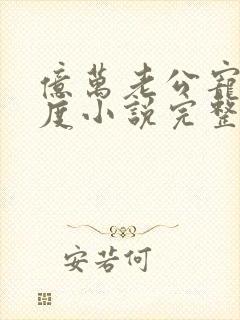 億萬老公寵
度小説完整
安若何